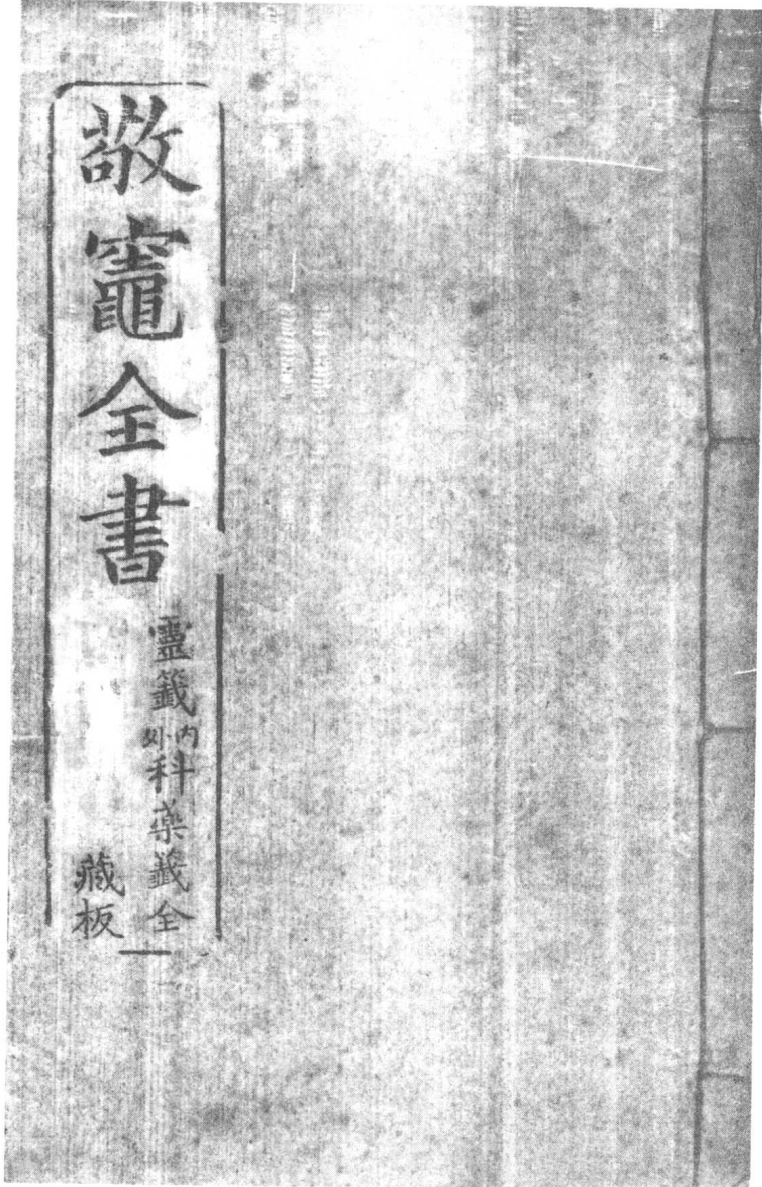 敬竈全書
靈籤内外科藥籤全
藏板